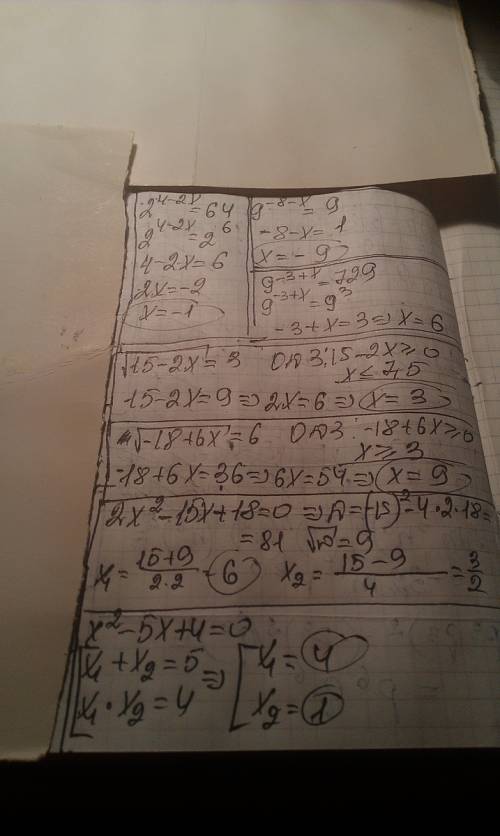 2^{4-2x} = 64
2^{4-2x} = 2^6
4-2x=6
2x=-2
x=-1
9^{-8-x} = 9
-8-x=1
x=-9
9^{-3+x} = 729
9^{-3+x} = 9^3
-3+x=3 => x=6
√15-2x = 3 ОДЗ: 15-2x ≥ 0
x ≤ 7,5
15-2x=9 => 2x=6 => x=3
√-18+6x = 6 ОДЗ -18+6x ≥ 0
x ≥ 3
-18+6x=36 => 6x=54 => x=9
2x²-15x+18=0 => D=(-15)²-4·2·18=
=81 √D=9
x₁ = (15+9)/(2·2) = 6 x₂ = (15-9)/4 = 3/2
x²-5x+4=0
[x₁+x₂=5 => [x₁=4
x₁·x₂=4 x₂=1